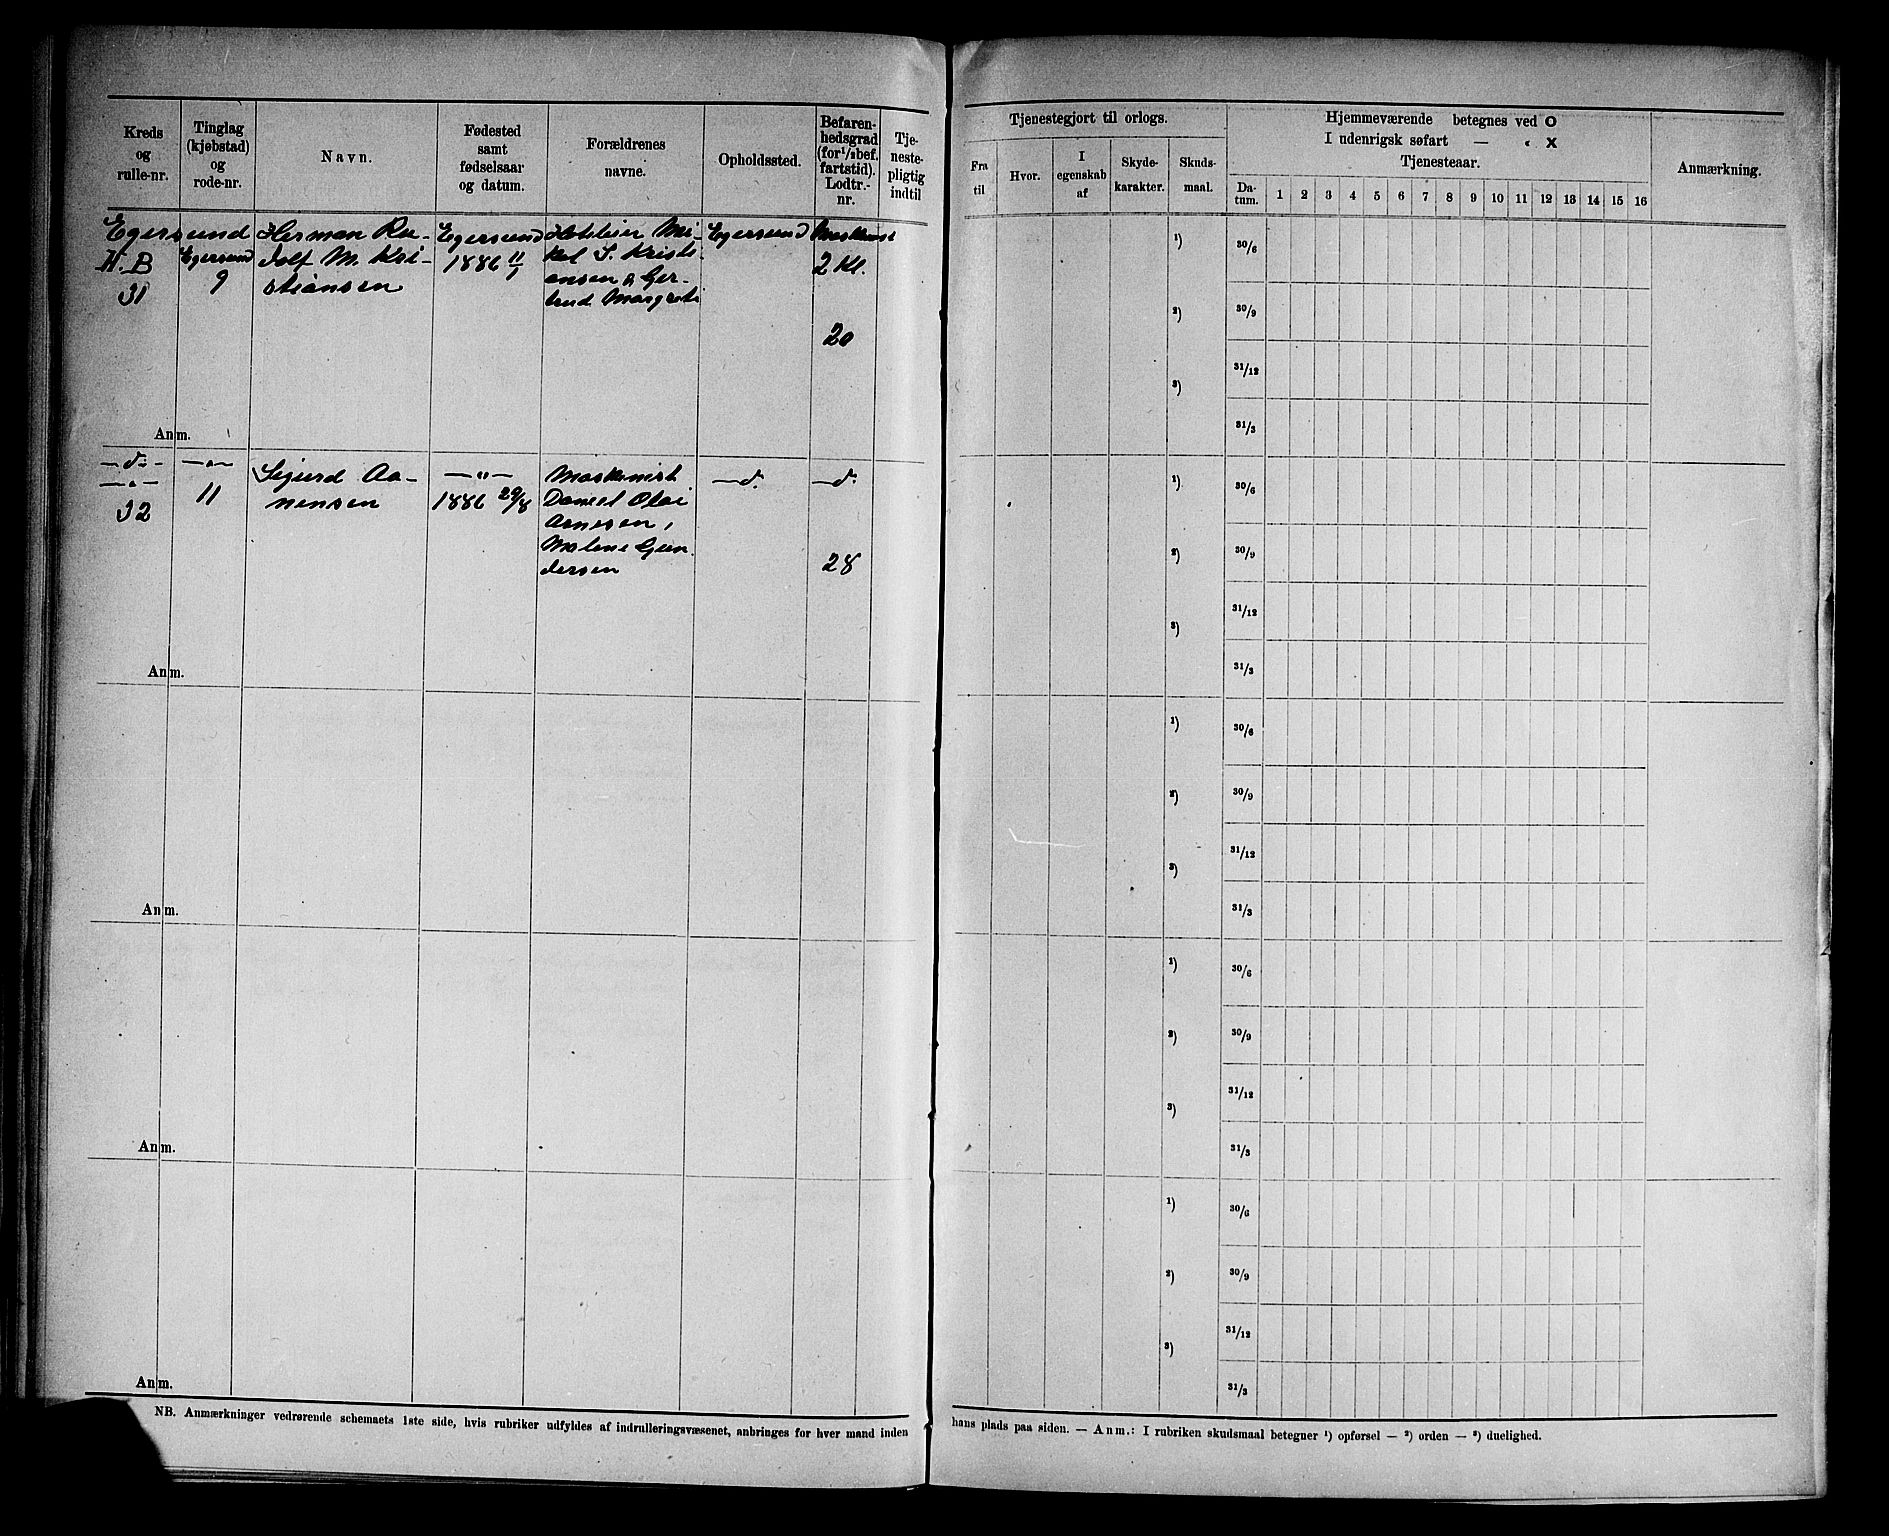 Kreds
og
rulle-nr.
Tinglag
(kjøbstad)
og
rode-nr.
Navn.
Fødested
samt
fødselsaar
og datum.
Forældrenes
navne.
Opholdssted.
Befaren-
hedsgrad
(for 1/1 bef.
fartstid).
Lodtr.-
nr.
Tje-
neste-
pligtig
indtil
Egersund
H. B
31
Egersund
9
Herman Ru-
dolf M. Kri-
stiansen
Egersund
1886 11/1
Hoteleier Mi-
kal S. Kristi-
ansen & Ger-
trud Margrete
Egersund
Maskinist
2 Kl.
20
Anm.
—d:-
—"—
32
—"—
11
Sigurd Aa-
nensen
—"—
1886 29/8
Maskinist
Daniel Olai
Aanesen,
Malene Gun-
dersen
—d.
—d.
28
Anm.
Anm.
Anm.
Anm.
NB. Anmærkninger vedrørende schemaets 1ste side, hvis rubriker udfyldes af indrulleringsvæsenet, anbringes for hver mand inden
Tjenestegjort til orlogs.
Fra
til
Hvor.
I
egenskab
af
Skyde-
karakter.
Skuds-
maal.
Hjemmeværende betegnes ved O
I udenrigsk søfart — " X
Tjenesteaar.
Da-
tum.
1 2 3 4 5 6 7 8 9 10 11 12 13 14 15 16
Anmærkning.
1) 30/6
2) 30/9
31/12
3)
31/3
1) 30/6
2) 30/9
31/12
3)
31/3
1) 30/6
2) 30/9
31/12
3)
31/3
1) 30/6
2) 30/9
31/12
3)
31/3
1) 30/6
2) 30/9
31/12
3)
31/3
hans plads paa siden. — Anm.: I rubriken skudsmaal betegner 1) opførsel — 2) orden — 3) duelighed.